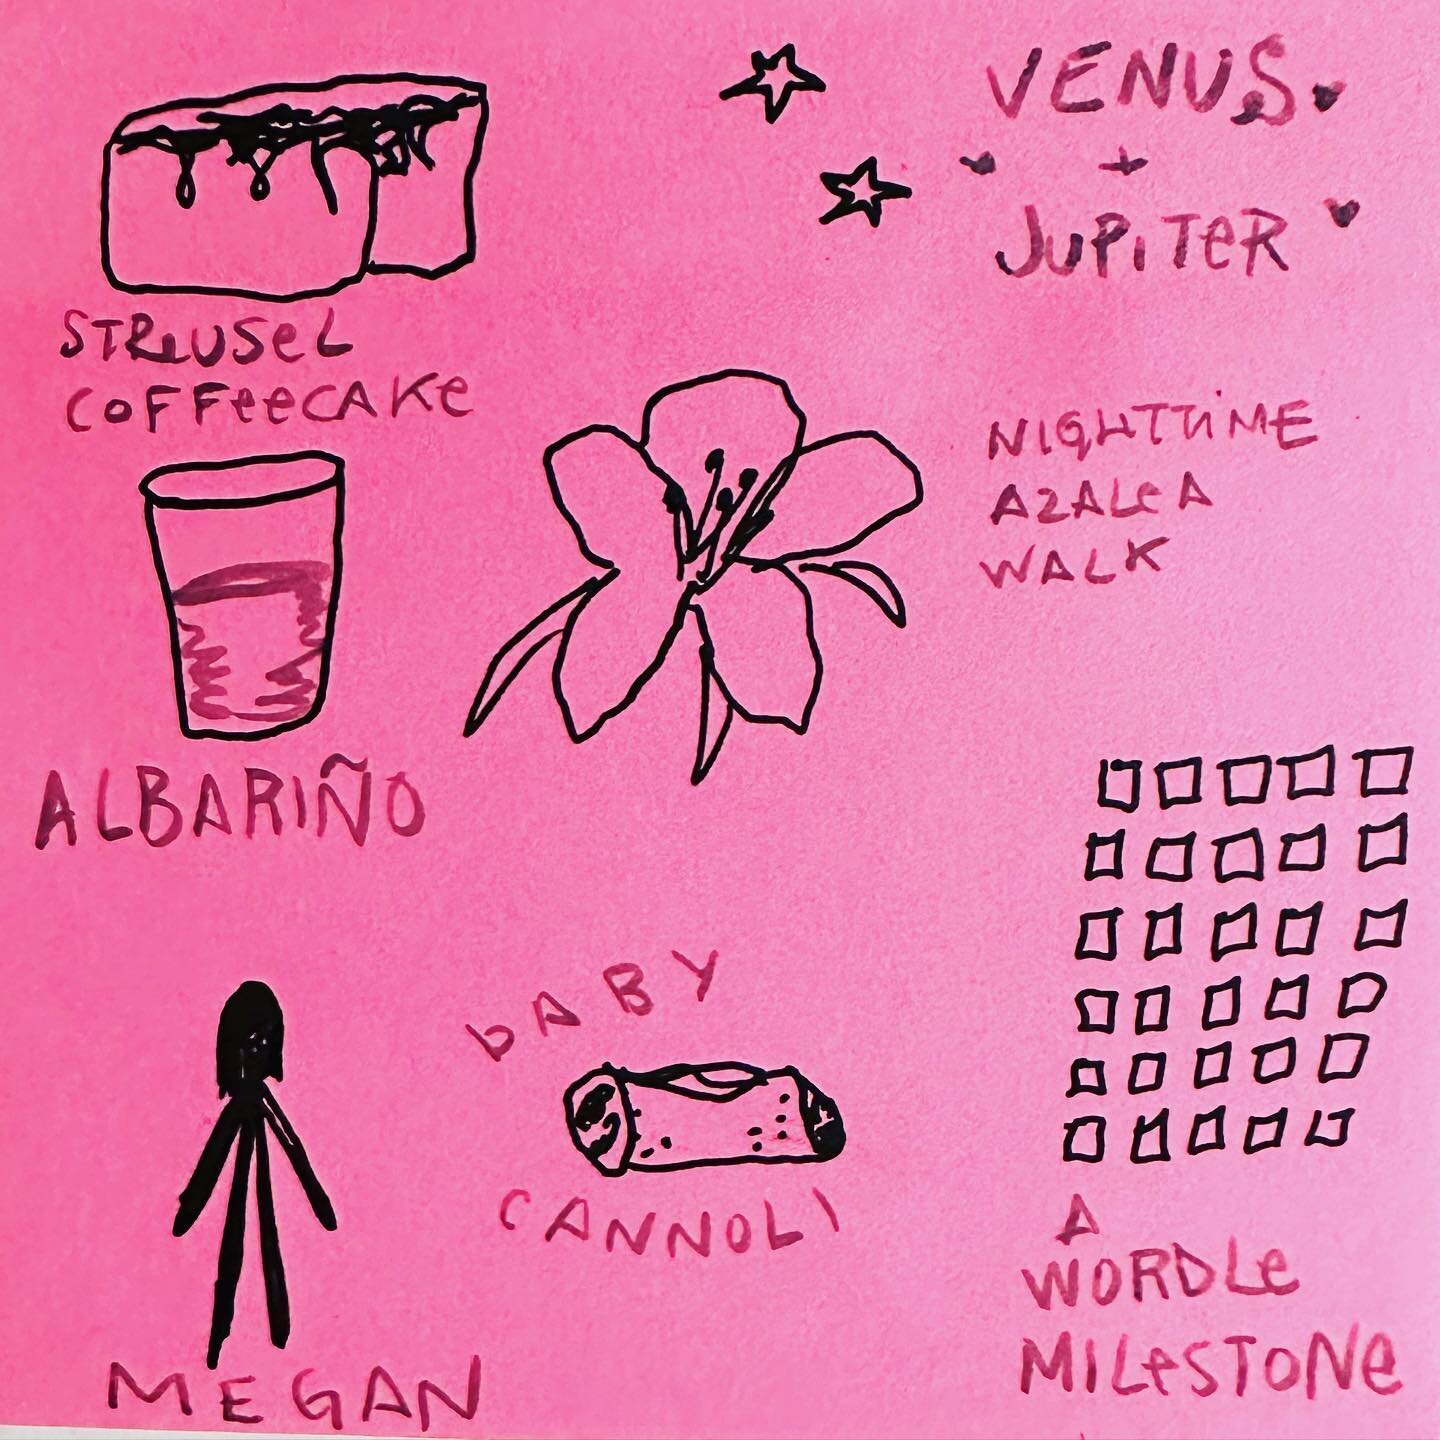 VENUS
+
JUPITER
STREUSEL
COFFEECAKE
NIGHTTIME
AZALEA
WALK
ALBARIÑO
BABY
CANNOLI
A
WORDLE
MILESTONE
MEGAN